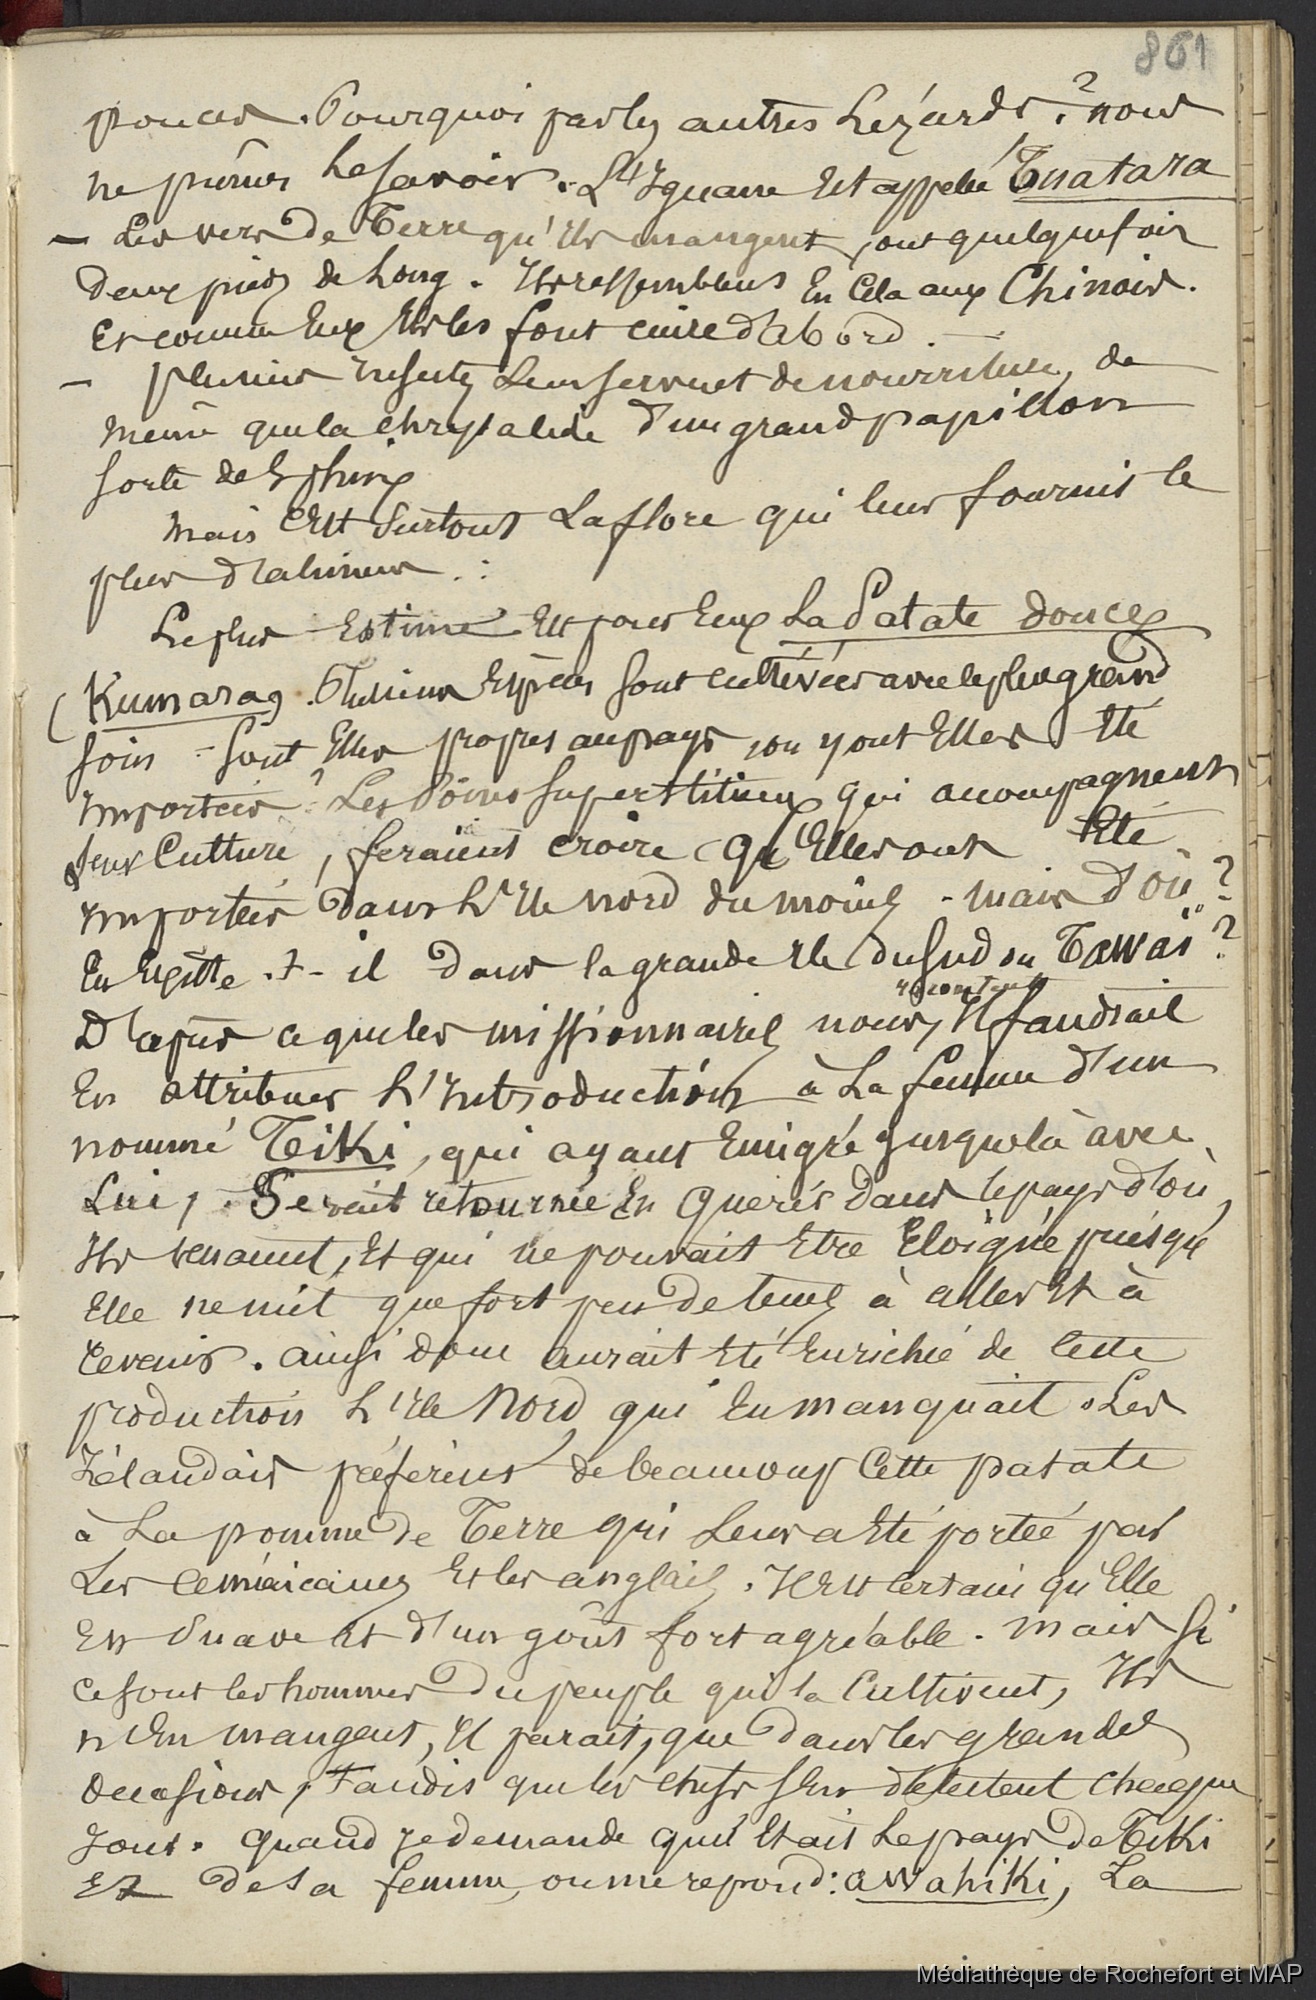 861
pouces. Pourquoi pas les autres Lézards ? nous
ne pûmes le savoir. L'Iguane est appelé Tuatara
— Les vers de Terre qu'ils mangent, ont quelquefois
deux pieds de long. Ils ressemblent en cela aux Chinois.
et comme Eux ils les font cuire d'abord. —
— plusieurs insectes leur servent de nourriture, de
même que la chrysalide d'un grand papillon
sorte de Sphinx
Mais c'est surtout la flore qui leur fournit le
plus d'aliments :
Le plus Estimé est pour Eux La Patate douce
(Kumara). Plusieurs Espèces sont cultivées avec le plus grand
soin - sont Elles propres au pays, ou y ont Elles été
importées ? Les soins superstitieux qui accompagnent
leur Culture, feraient croire qu'Elles ont Eté
importées dans l'Ile Nord du moins - mais d'où ?
En Existe-t-il dans la grande Ile du Sud ou Tawaï ?
racontent
D'après ce que les missionnaires nous, il faudrait
En attribuer l'introduction à la femme d'un
nommé Tiki, qui ayant Emigré jusque là avec
Lui, serait retournée En quérir dans le pays d'où
Ils venaient, Et qui ne pouvait Etre Eloigné puisqu'
Elle ne mit que fort peu de temps à aller Et à
revenir. ainsi donc aurait Eté Enrichie de cette
production l'Ile Nord qui En manquait. Les
Zélandais préfèrent de beaucoup Cette patate
à La pomme de Terre qui Leur a Eté portée par
Les américains Et les anglais. Il Est certain qu'Elle
Est suave Et d'un goût fort agréable. Mais si
ce sont les hommes du peuple qui la Cultivent, Ils
n'En mangent, Il paraît, que dans les grandes
occasions, Tandis que les chefs s'En délectent chaque
jour. quand je demande quel Etait le pays de Tiki
Et de sa femme, on me répond : awahiki, La
Médiathèque de Rochefort et MAP